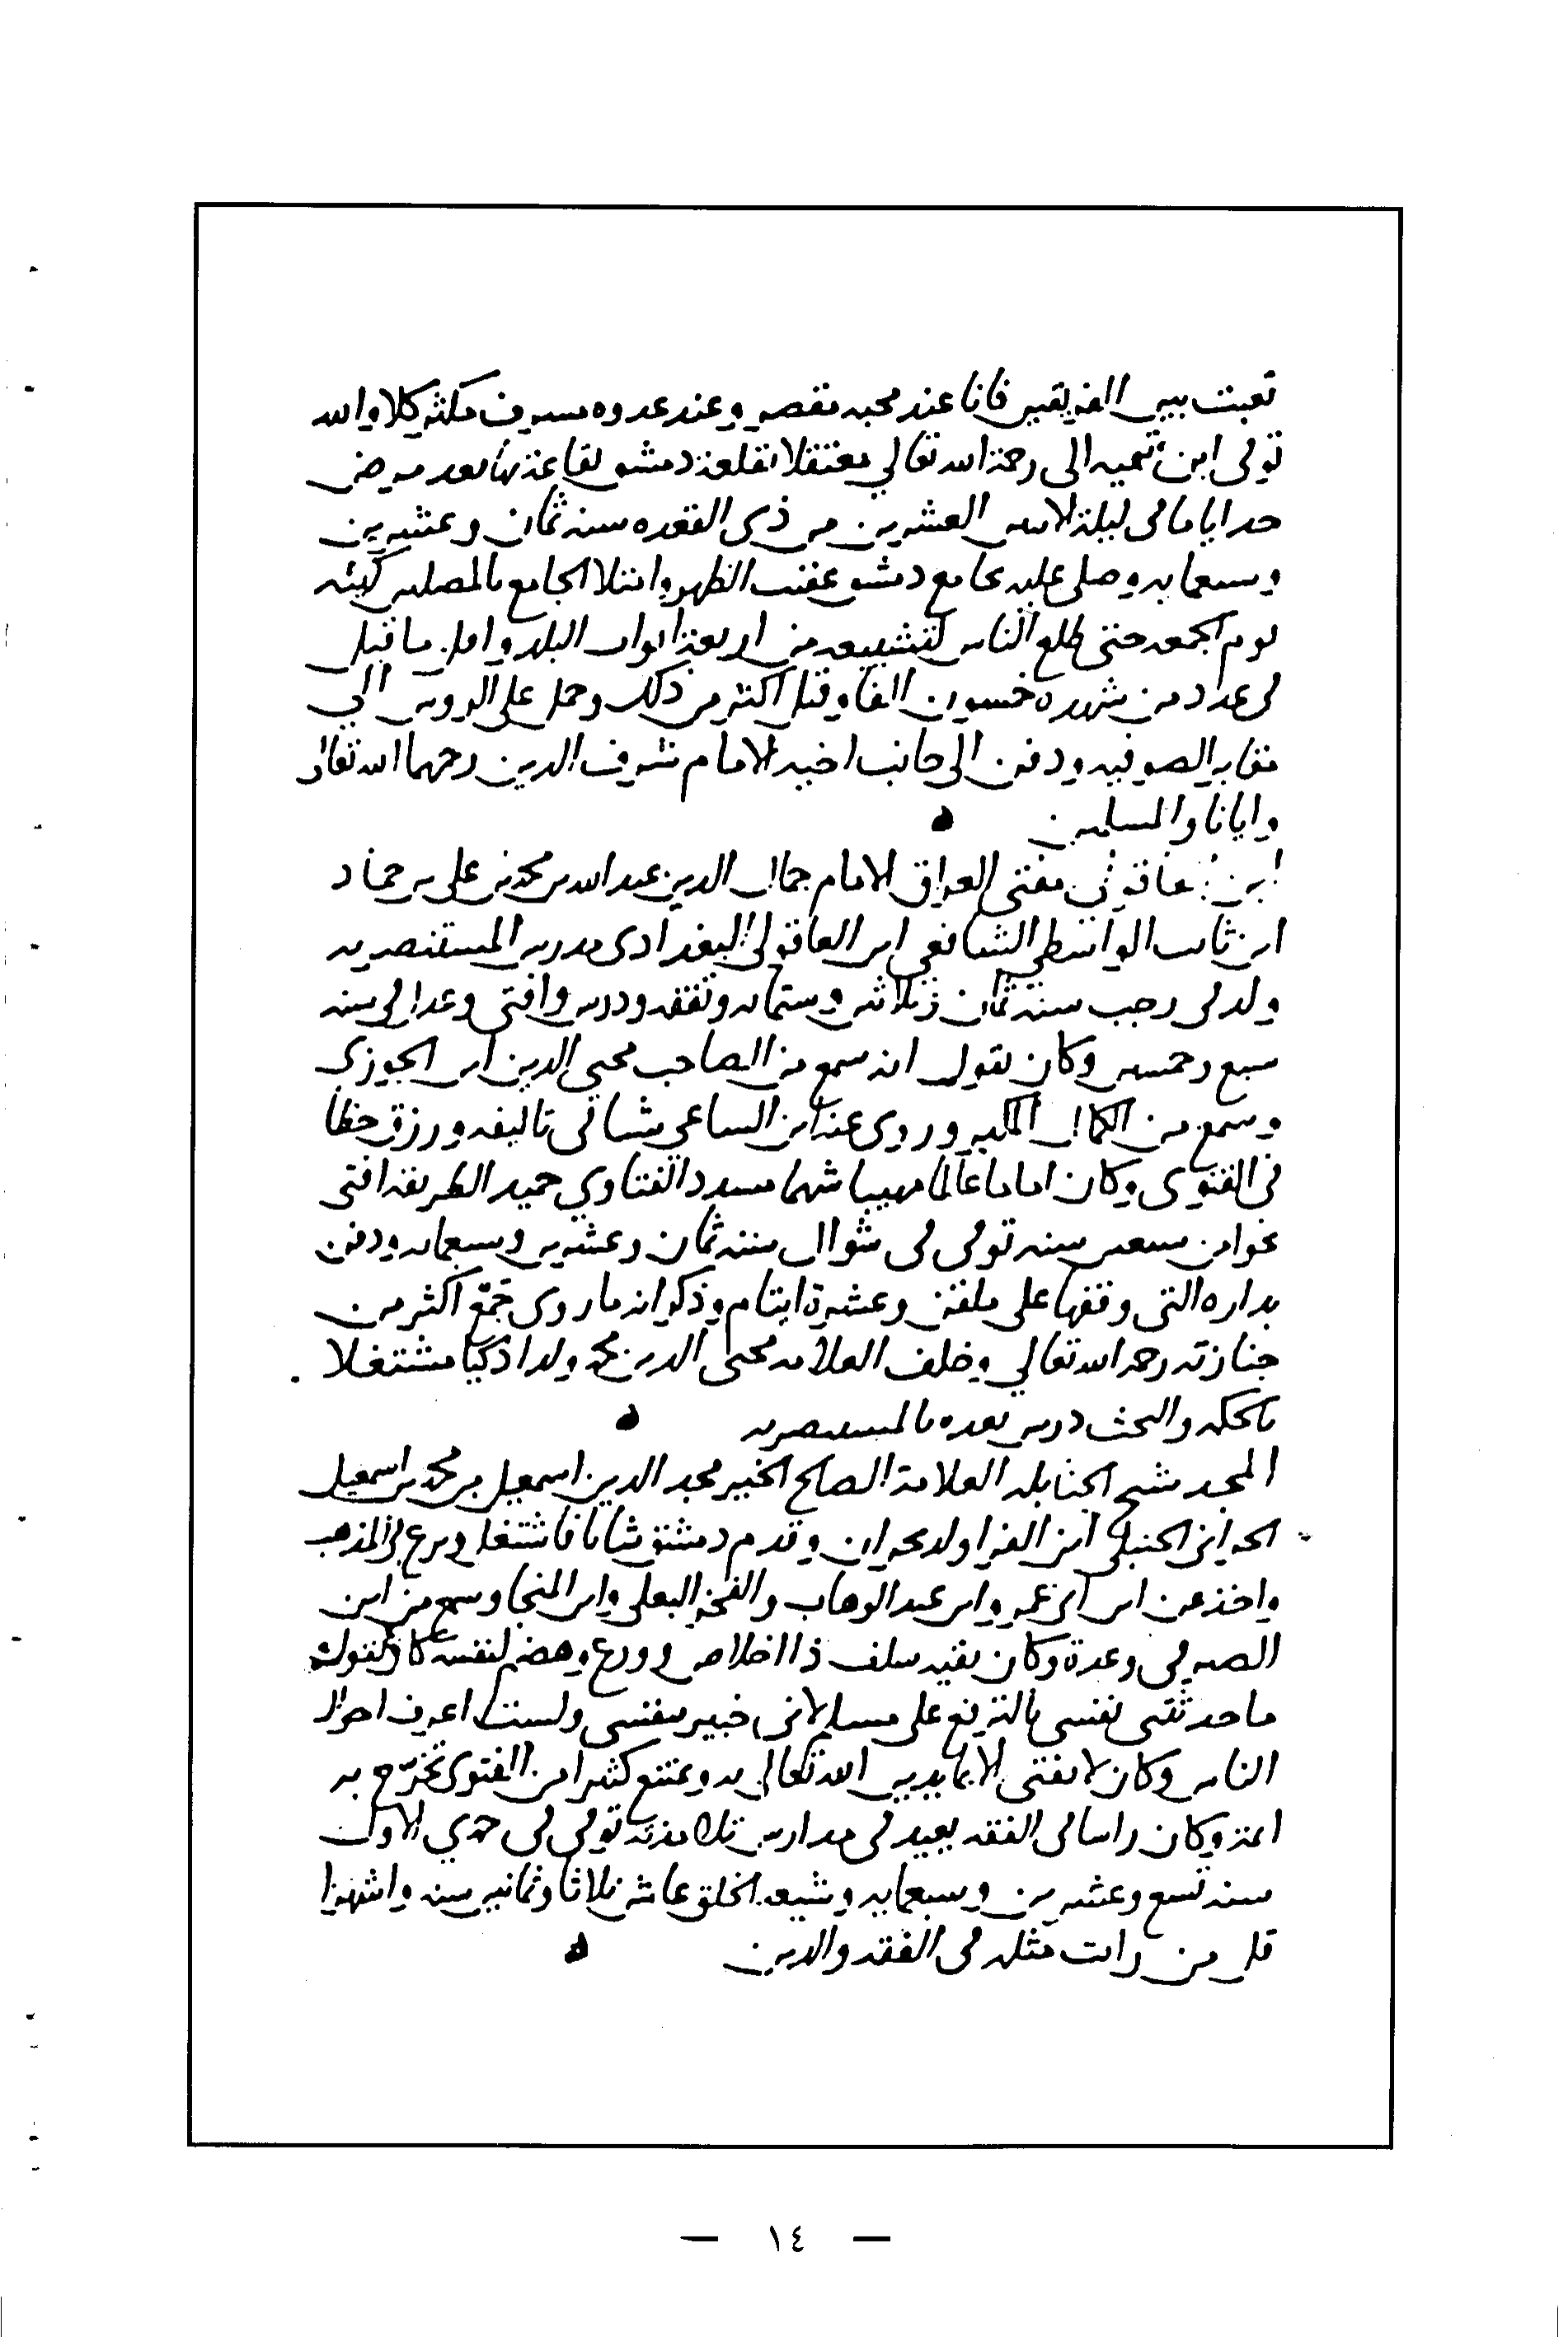 تعبت بين الفريقين فانا عند محبه مقصر وعند عدوه مسرف مكثر كلا والله
توفى ابن تيميه الى رحمة الله تعالي معتقلا بقلعة دمشق بقاعة بها بعد مرض
جد اياما فى ليلة الاثنين العشرين من ذى القعده سنه ثمان وعشرين
وسبعمايه وصلى عليه بجامع دمشق عقيب الظهر وامتلا الجامع بالمصلين كهيئة
يوم الجمعه حتى طلع الناس لتشييعه من اربعة ابواب البلد واقل ما قيل
فى عدد من شهده خمسون الفا وقيل اكثر من ذلك وحمل على الروس الي
مقابر الصوفيه ودفن الى جانب اخيه الامام شرف الدين رحمهما الله تعالى
وايانا والمسلمين ه
ابن العاقولى مفتى العراق الامام جمال الدين عبد الله بن محمد بن على بن حماد
ابن ثابت الواسطي الشافعي ابن العاقولى البغدادى مدرس المستنصريه
ولد فى رجب سنة ثمان وثلاثين وستمايه وتفقه ودرس وافتى وعدل فى سنه
سبع وخمسين وكان يقول انه سمع من الصاحب محيي الدين ابن الجوزى
وسمع من الكمال الكبير وروى عنه ابن الساعي شيا فى تاليفه ورزق حظا
فى الفتوى وكان اماما عالما مهيبا شهما مسدد الفتاوي حميد الطريقه افتى
نحوا من سبعين سنه توفى فى شوال سنة ثمان وعشرين وسبعمايه ودفن
بداره التى وقفها على ملقن وعشرة ايتام وذكر انه ما روى جمع اكثر من
جنازته رحمه الله تعالي وخلف العلامه محيى الدين محمد ولدا ذكيا مشتغلا
بالحكمه والبحث درس بعده بالمستنصريه ه
المجد شيخ الحنابله العلامة الصالح الخير مجد الدين اسمعيل بن محمد بن اسمعيل
الحرانى الحنبلى ابن الفرا ولد بحران وقدم دمشق شابا فاشتغل وبرع فى المذهب
واخذ عن ابن ابى عمر وابن عبد الوهاب والفخر البعلى وابن المنجا وسمع من ابن
الصيرفى وعدة وكان بقيه سلف ذا اخلاص وورع وهضم لنفسه كان يقول
ما حدثتنى نفسى بالترفع على مسلم لانى خبير بنفسى ولست اعرف احوال
الناس وكان لا يفتى الا بما يدين الله تعالى به ويمتنع كثيرا من الفتوى تخرّج به
ائمة وكان راسا فى الفقه يعيد فى مدارس تلامذته توفى فى جمدي الاول
سنة تسع وعشرين وسبعمايه وشيعه الخلق عاش ثلاثا وثمانين سنه واشهرا
قل من رات مثله فى الفقه والدين ه
— ١٤ —